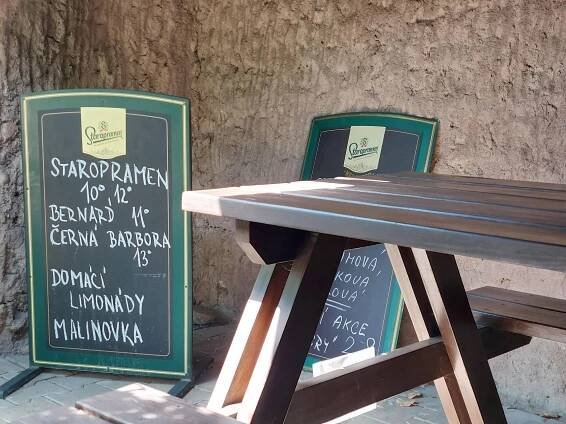 Staropramen
STAROPRAMEN
10° 12°
BERNARD 11°
ČERNÁ BARBORA
13°
DOMÁCÍ
LIMONÁDY
MALINOVKA
Staropramen
AKCE